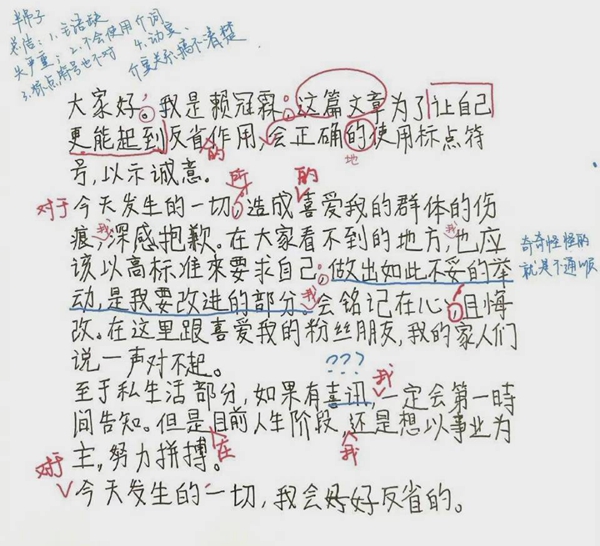 半吊子
总结：1.主语缺
失严重；2.不会使用介词
3.标点符号也不对 4.动宾、
介宾关系搞不清楚
大家好。我是赖冠霖，这篇文章为了让自己
更能起到反省作用，会正确的使用标点符
的
地
号，以示诚意。
所
的
对于
今天发生的一切，造成喜爱我的群体的伤
我
我
痕，深感抱歉。在大家看不到的地方，也应
奇奇怪怪的
就是不通顺
该以高标准来要求自己。做出如此不妥的举
我
动，是我要改进的部分。会铭记在心，且悔
改。在这里跟喜爱我的粉丝朋友，我的家人们
说一声对不起。
???
我
至于私生活部分，如果有喜讯，一定会第一時
间告知。但是目前人生阶段，还是想以事业为
在
我
主，努力拼搏。
对于
今天发生的一切，我会好好反省的。